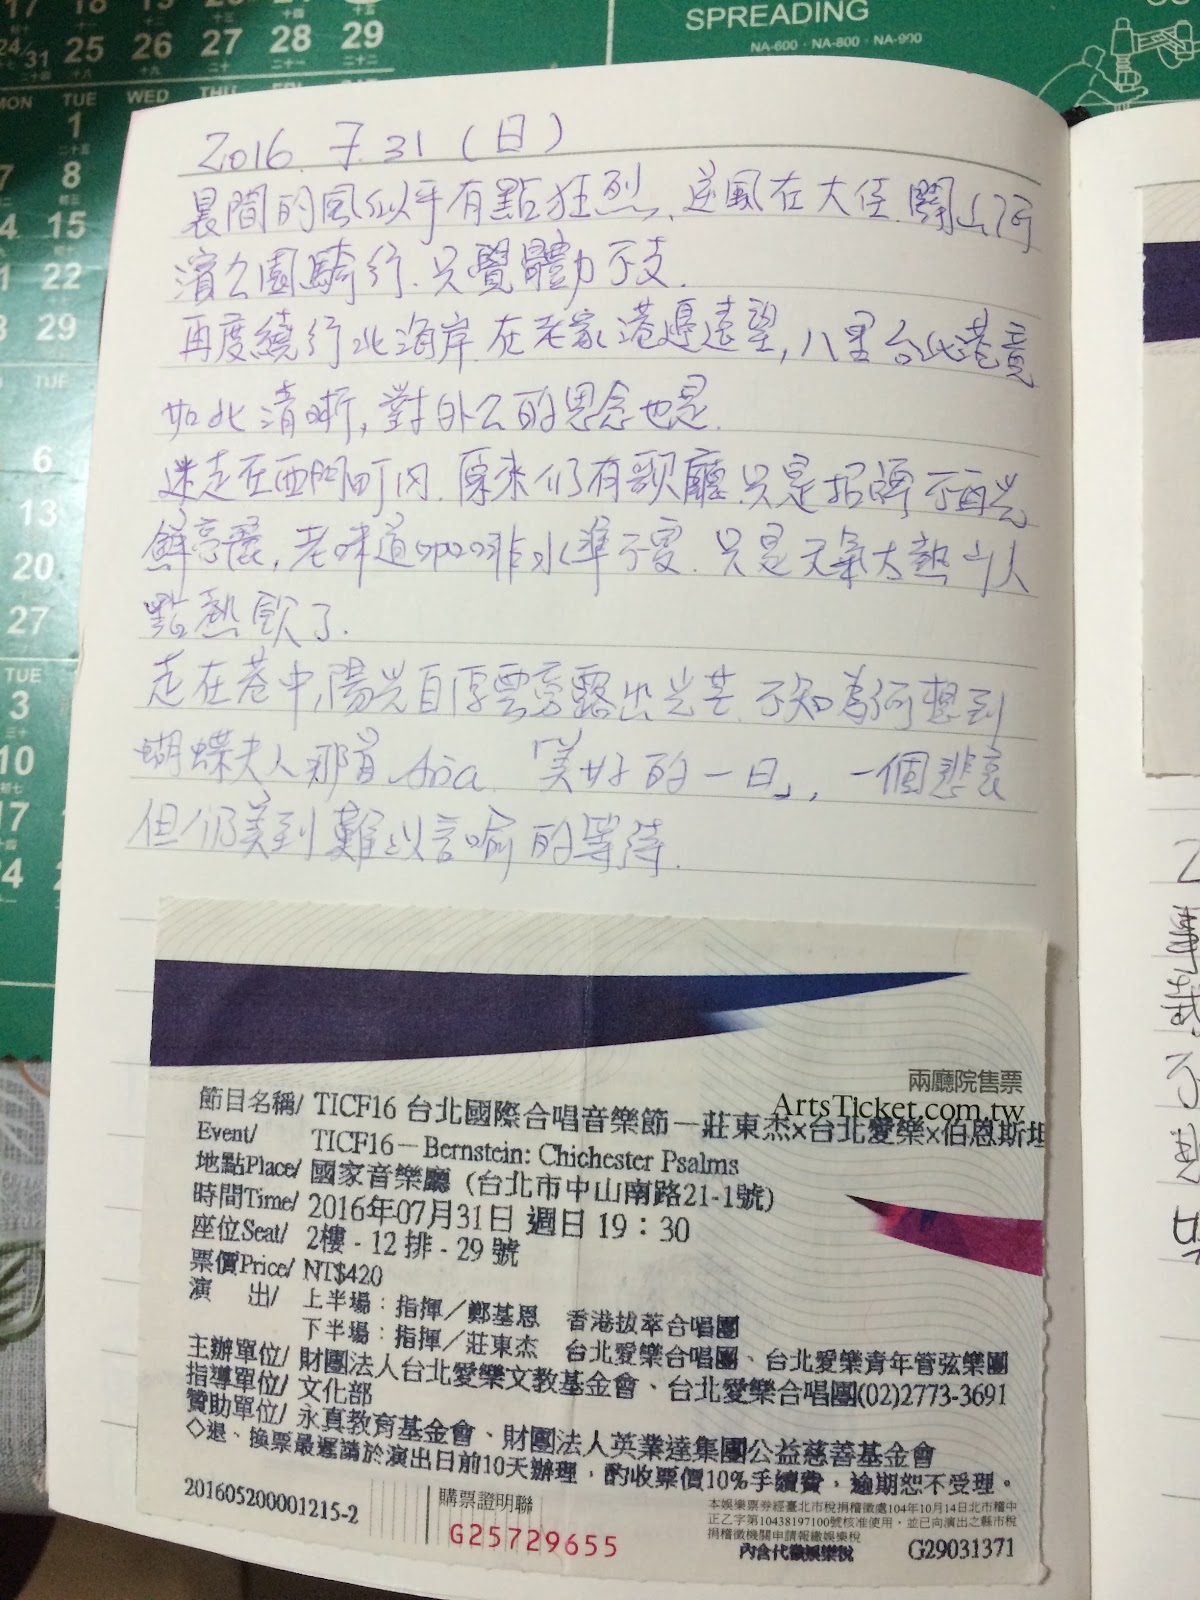 SPREADING
NA-600 · NA-800 · NA-900
17 18 19 20 21 22
24 31 25 26 27 28 29
MON TUE WED THU FRI
1
8
15
22
29
TUE
6
13
20
27
TUE
3
10
17
24
2016 7.31 (日)
晨間的風似乎有點狂烈. 逆風在大佳. 關山河
濱公園騎行. 只覺體力不支.
再度繞行北海岸 在老家港邊遠望, 八里台北港竟
如此清晰, 對外公的思念也是.
迷走在西門町內. 原來仍有歌廳 只是招牌不再光
鮮亮麗, 老味道咖啡水準不變. 只是天氣太熱少人
點熱飲了.
走在巷中, 陽光自厚雲旁露出光芒. 不知為何想到
蝴蝶夫人那首 Aria 「美好的一日」, 一個悲哀
但仍美到難以言喻的等待.
兩廳院售票
ArtsTicket.com.tw
節目名稱/ TICF16 台北國際合唱音樂節－莊東杰x台北愛樂x伯恩斯坦
Event/ TICF16－Bernstein: Chichester Psalms
地點Place/ 國家音樂廳 (台北市中山南路21-1號)
時間Time/ 2016年07月31日 週日 19：30
座位Seat/ 2樓 - 12 排 - 29 號
票價Price/ NT$420
演 出/ 上半場：指揮／鄭基恩 香港拔萃合唱團
下半場：指揮／莊東杰 台北愛樂合唱團、台北愛樂青年管弦樂團
主辦單位/ 財團法人台北愛樂文教基金會、台北愛樂合唱團(02)2773-3691
指導單位/ 文化部
贊助單位/ 永真教育基金會、財團法人英業達集團公益慈善基金會
◇退、換票最遲請於演出日前10天辦理，酌收票價10%手續費，逾期恕不受理。
201605200001215-2
購票證明聯
G25729655
本娛樂票券經臺北市稅捐稽徵處104年10月14日北市稽中
正乙字第10438197100號核准使用，並已向演出之縣市稅
捐稽徵機關申請報繳娛樂稅
內含代徵娛樂稅
G29031371